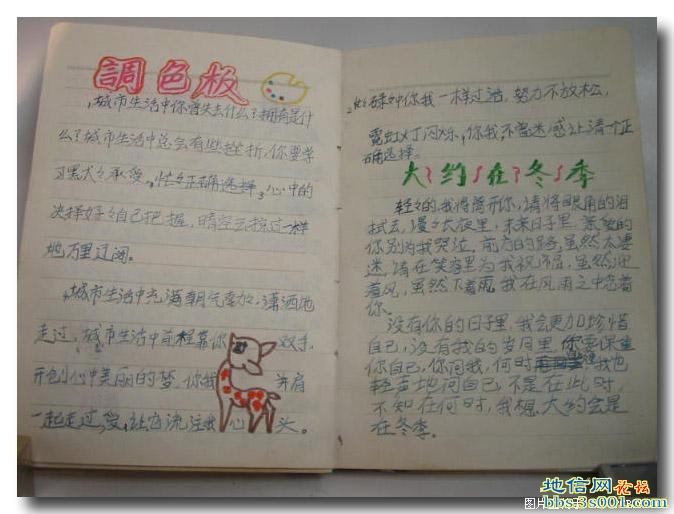 調色板
城市生活中你曾失去什么?拥有是什
么?城市生活中总会有些挫折,你要学
习默默承受,忙忙正确选择,心中的
决择好好自己把握,晴空云掠过一样
地万里辽阔。
城市生活中充满朝气 潇洒地
走过,城市生活中前程靠你 双手
开创心中美丽的梦,你我 并肩
一起走过,爱,让它流注我 心 头。
忙碌如你我一样过活,努力不放松,
霓虹灯闪烁,你我不曾迷惑让清 正
确选择。
大约在冬季
轻轻的我将离开你,请将眼角的泪
拭去,漫漫长夜里,未来日子里,亲爱的
你别为我哭泣。前方的路虽然太凄
迷,请在笑容里为我祝福,虽然迎
着风,虽然下着雨,我在风雨之中念着
你。
没有你的日子里,我会更加珍惜
自己,没有我的岁月里,你要保重
你自己,你问我,何时 我也
轻声地问自己,不是在此时,
不知在何时,我想大约会是
在冬季。
地信网论坛
bbs.3s001.com